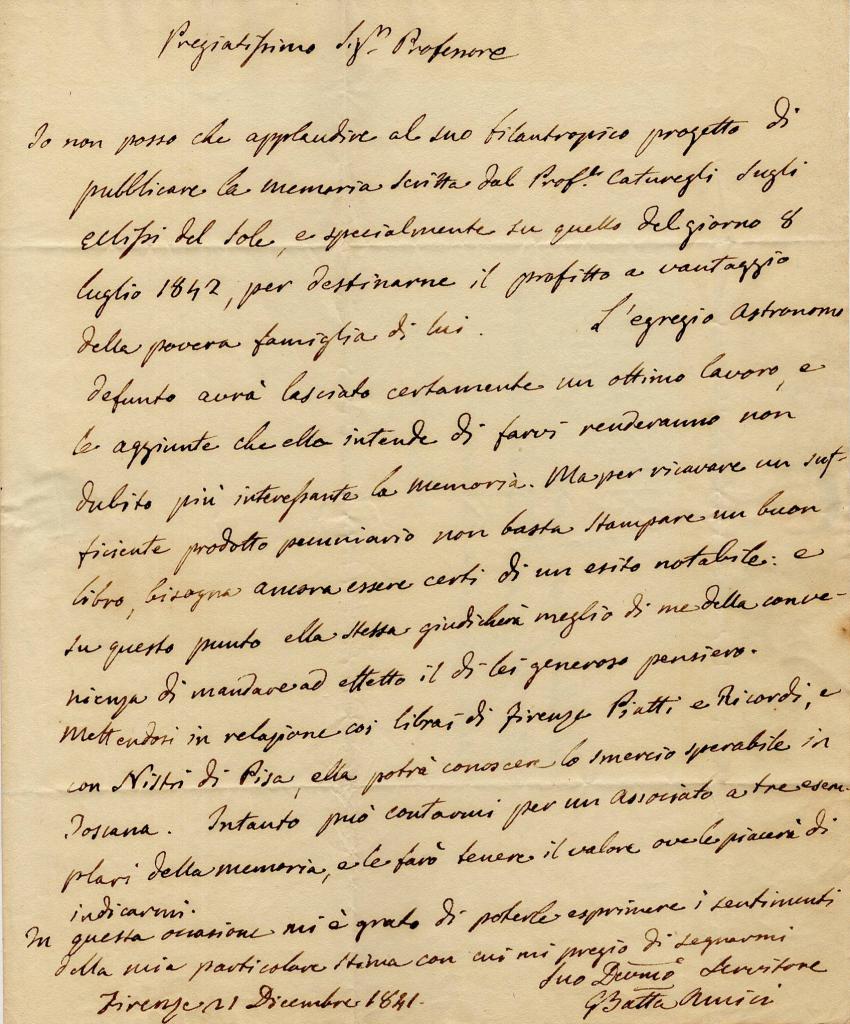 Pregiatissimo Sigr. Professore
Io non posso che applaudire al suo filantropico progetto di
pubblicare la memoria scritta dal Profr. Caturegli sugli
eclissi del Sole, e specialmente su quello del giorno 8
luglio 1842, per destinarne il profitto a vantaggio
della povera famiglia di lui. L'egregio Astronomo
defunto avrà lasciato certamente un ottimo lavoro, e
le aggiunte che ella intende di farvi renderanno non
dubito più interessante la memoria. Ma per ricavare un suf-
ficiente prodotto pecuniario non basta stampare un buon
libro, bisogna ancora essere certi di un esito notabile: e
su questo punto ella stessa giudicherà meglio di me della conve-
nienza di mandare ad effetto il di lei generoso pensiero.
Mettendosi in relazione coi librai di Firenze Piatti e Ricordi, e
con Nistri di Pisa, ella potrà conoscere lo smercio sperabile in
Toscana. Intanto può contarmi per un associato a tre esem-
plari della memoria, e le farò tenere il valore ove le piacerà di
indicarmi.
In questa occasione mi è grato di poterle esprimere i sentimenti
della mia particolare stima con cui mi pregio di segnarmi
Suo Devmo Servitore
Firenze 21 Dicembre 1841.
GBatta Amici